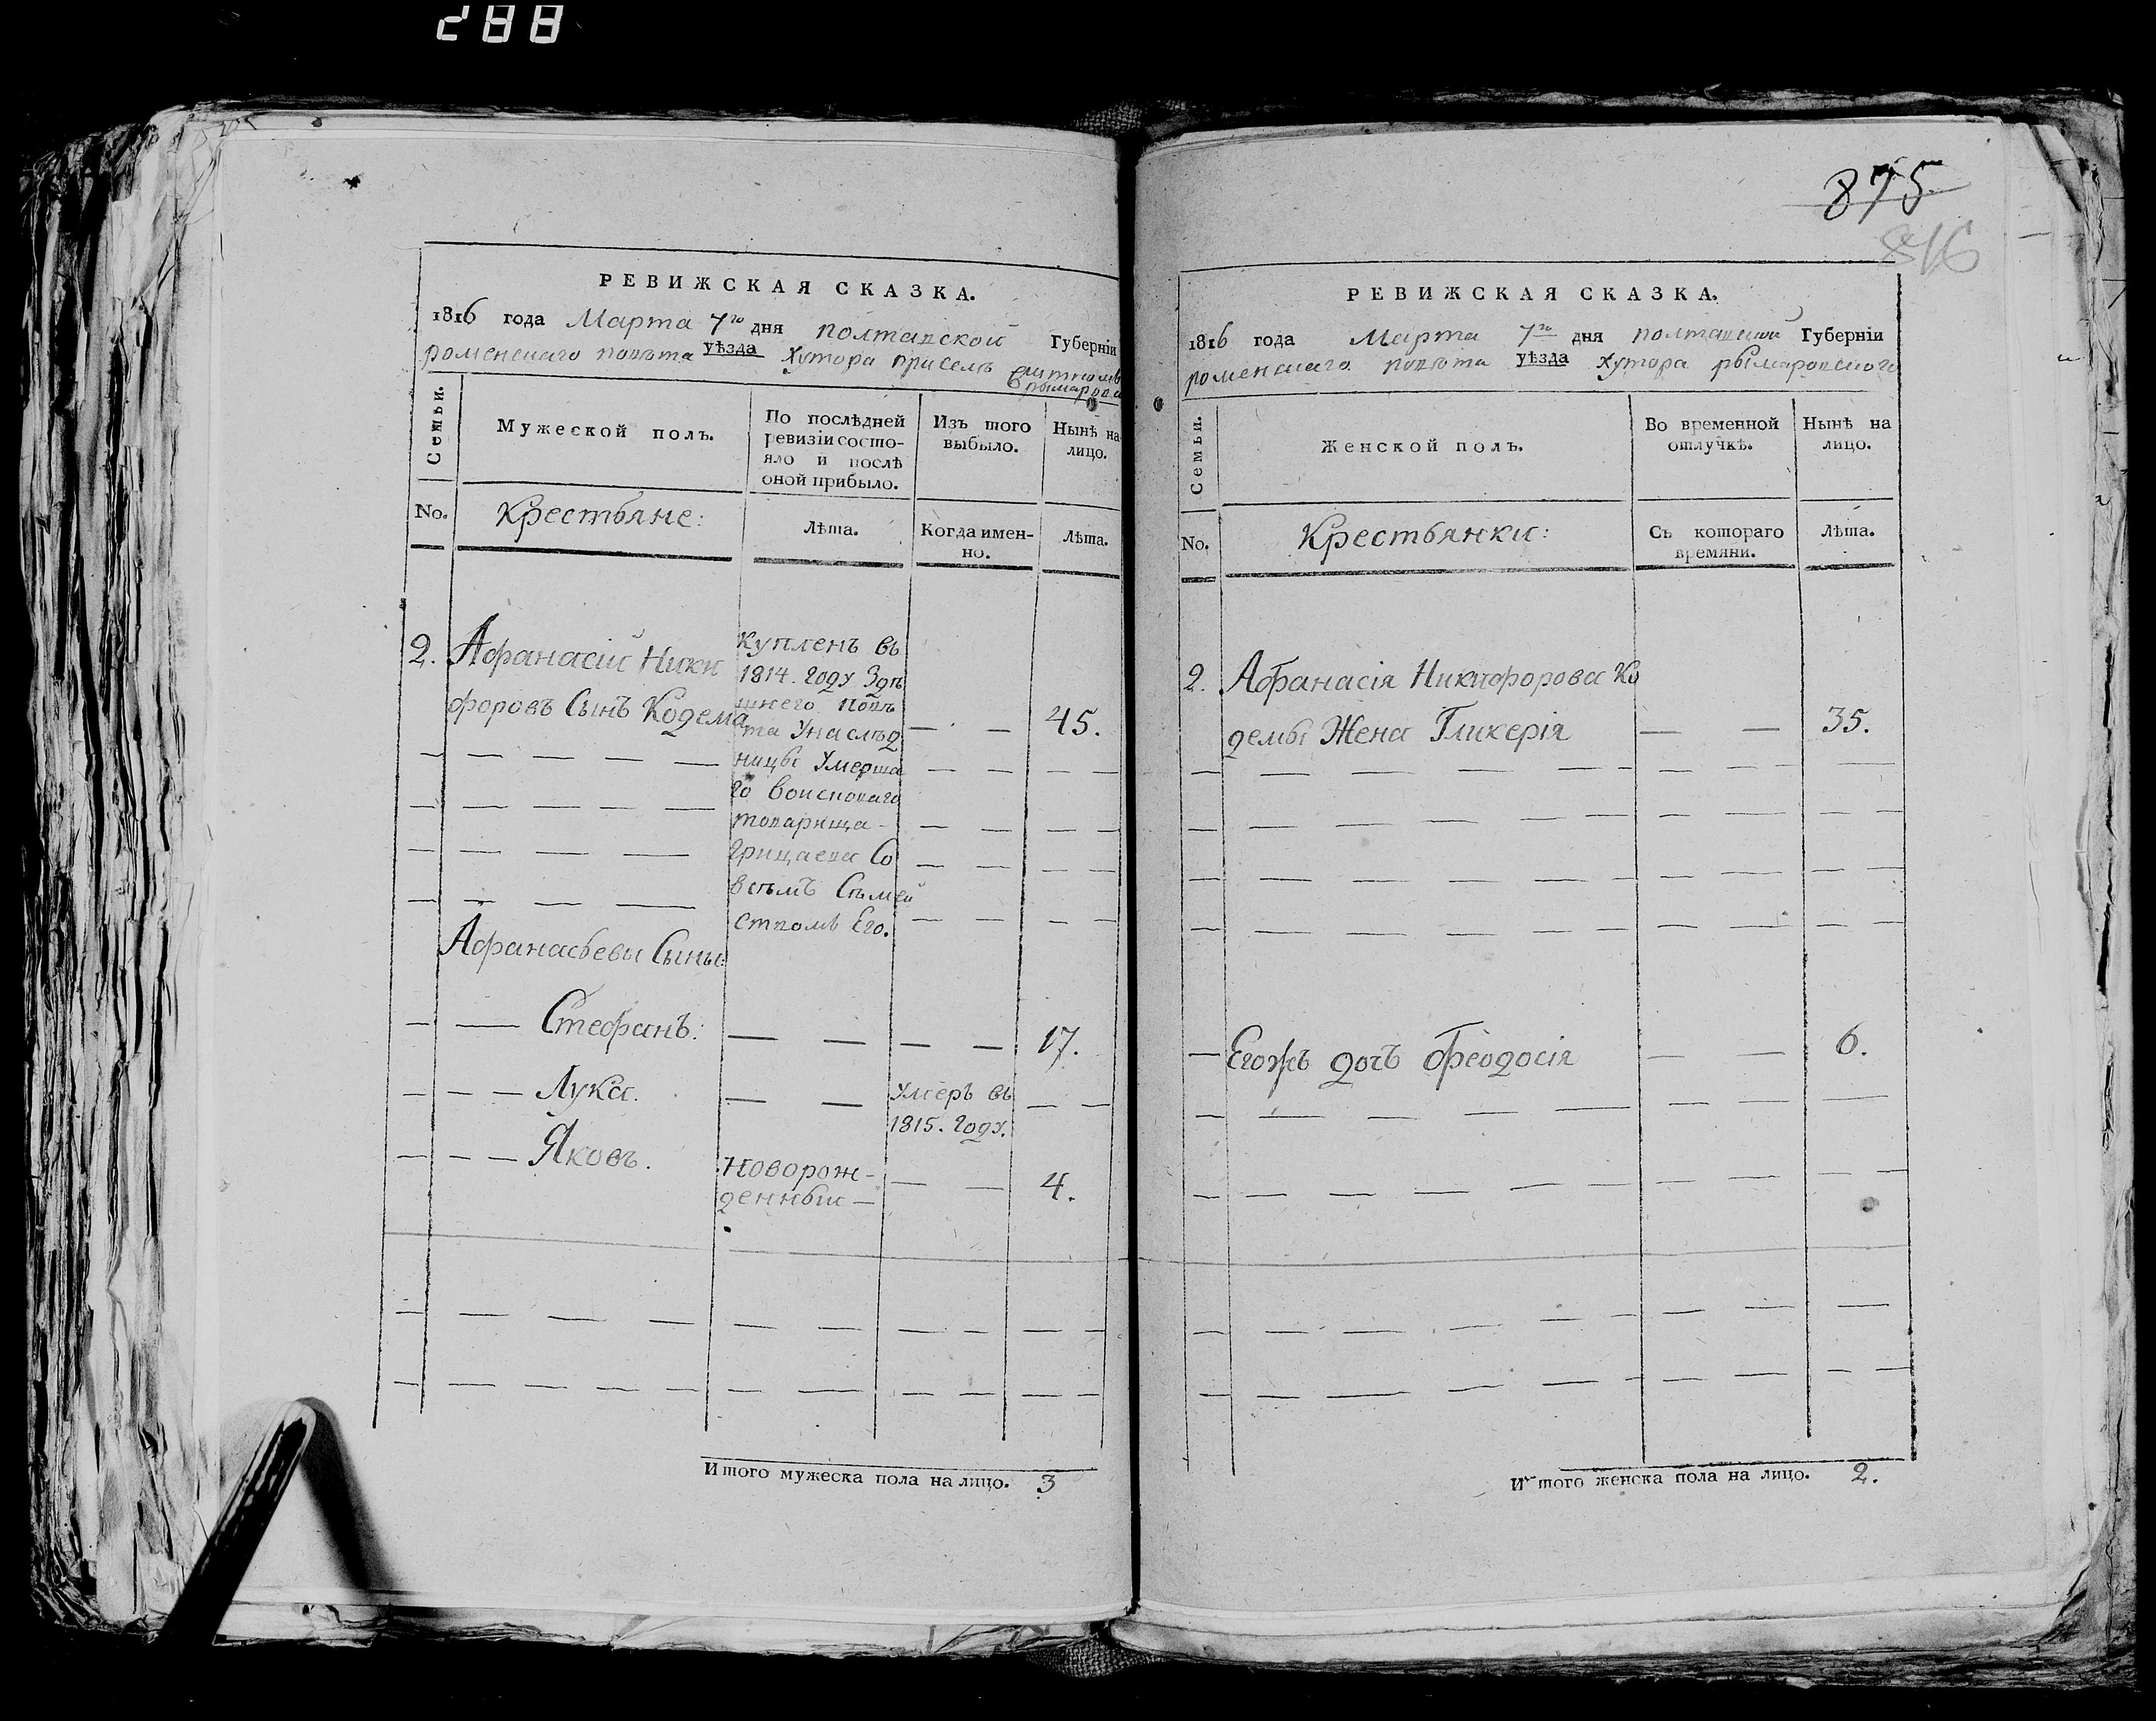 288
875
876
РЕВИЖСКАЯ СКАЗКА.
1816 года Марта 7го дня полтавской Губерніи
роменскаго повѣта уѣзда хутора при селѣ
рымарова
Семьи.
Мужеской полъ.
По послѣдней
ревизіи состо-
яло и послѣ
оной прибыло.
Изъ того
выбыло.
Нынѣ на
лицо.
No.
Крестьяне:
Лѣта.
Когда имен-
но.
Лѣта.
2. Афанасій Ники
форовъ Сынъ Кодема
45.
купленъ въ
1814. году Здѣ
шнего повѣ
та Унаслѣд
ницы Умерша
го воисковаго
товарища
Грицаева Со
всѣмъ Сѣмей
ствомъ Его.
Афанасьевы Сыны:
Стефанъ: 17.
Лука. Умеръ въ
1815. году.
Яковъ. Новорож-
денныи 4.
Итого мужеска пола на лицо. 3
РЕВИЖСКАЯ СКАЗКА.
1816 года Марта 7го дня полтавской Губерніи
роменскаго повѣта уѣзда хутора рымаровского
Семьи.
Женской полъ.
Во временной
отлучкѣ.
Нынѣ на
лицо.
No.
Крестьянки:
Съ котораго
времяни.
Лѣта.
2. Афанасія Никифорова Ко
демы Жена Гликерія 35.
Егожъ дочь Феодосія 6.
Итого женска пола на лицо. 2.